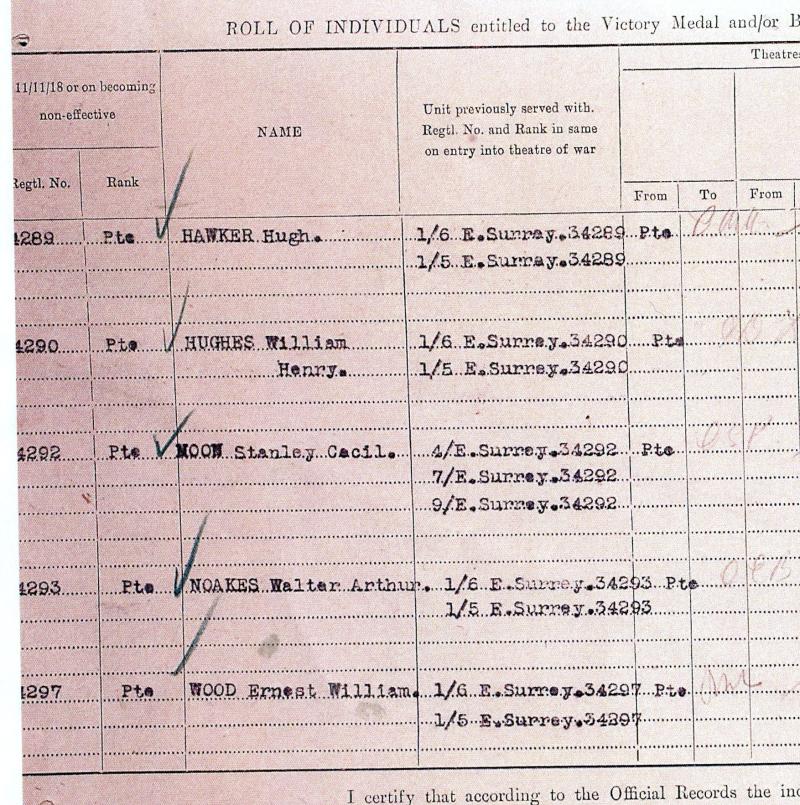 ROLL OF INDIVIDUALS entitled to the Victory Medal and/or B
Theatres
11/11/18 or on becoming
non-effective
NAME
Unit previously served with.
Regtl. No. and Rank in same
on entry into theatre of war
Regtl. No. Rank From To From
4289 Pte HAWKER Hugh. 1/6 E.Surrey.34289 Pte
1/5 E.Surray.34289
4290 Pte HUGHES William 1/6 E.Surrey.34290 Pte
Henry. 1/5 E.Surrey.34290
4292 Pte MOON Stanley Cecil. 4/E.Surrey.34292 Pte
7/E.Surrey.34292
9/E.Surrey.34292
4293 Pte NOAKES Walter Arthur. 1/6 E.Surrey.34293 Pte
1/5 E.Surrey.34293
4297 Pte WOOD Ernest William. 1/6 E.Surrey.34297 Pte
1/5 E.Surrey.34297
I certify that according to the Official Records the